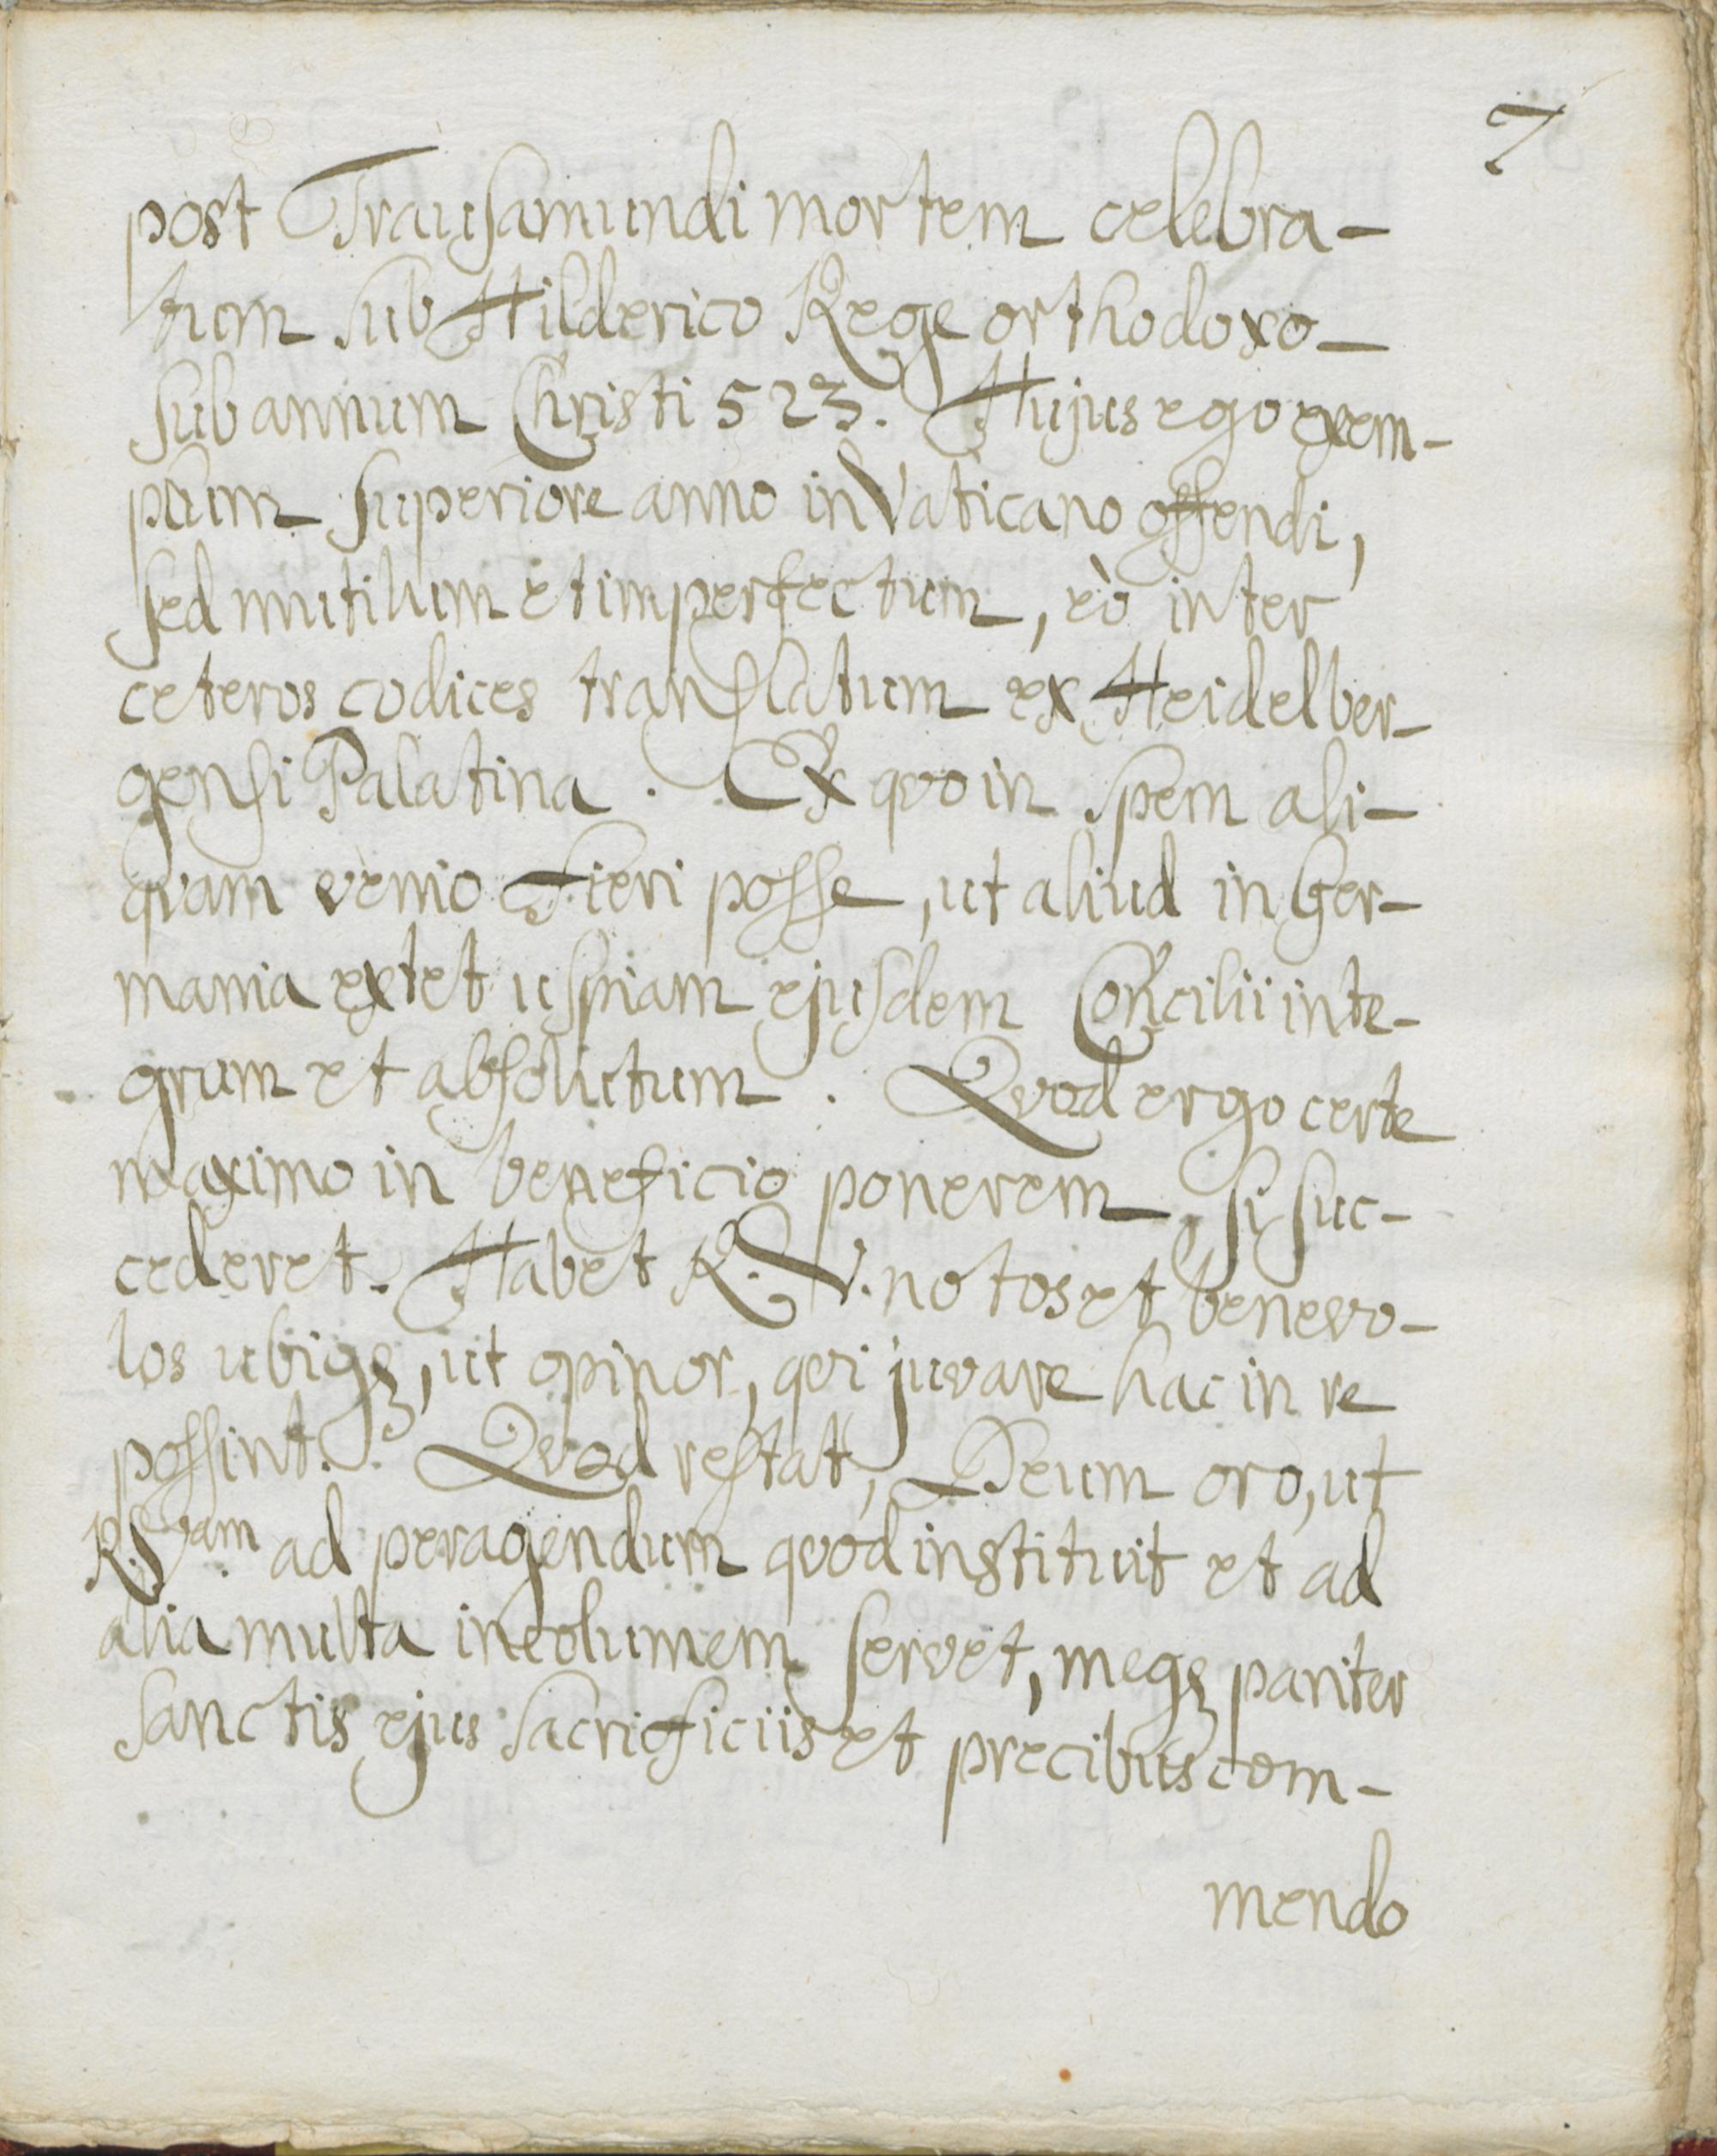 7
post Trausamundi mortem celebra-
tum sub Hilderico Rege orthodoxo
sub annum Christi 523. Hujus ego exem-
plum superiore anno in Vaticano offendi,
sed mutilum et imperfectum, eò inter
ceteros codices translatum ex Heidelber-
gensi Palatina. Ex quo in spem ali-
quam venio fieri posse, ut aliud in Ger-
mania extet uspiam ejusdem Concilii inte-
grum et absolutum. Quod ergo certe
maximo in beneficio ponerem, si suc-
cederet. Habet R. V. notos et benevo-
los ubiqȝ, ut opinor, qui juvare hac in re
possint. Quod restat, Deum oro, ut
R. V.am ad peragendum quod instituit et ad
alia multa incolumem servet, meqȝ pariter
sanctis ejus sacrificiis et precibus com-
mendo